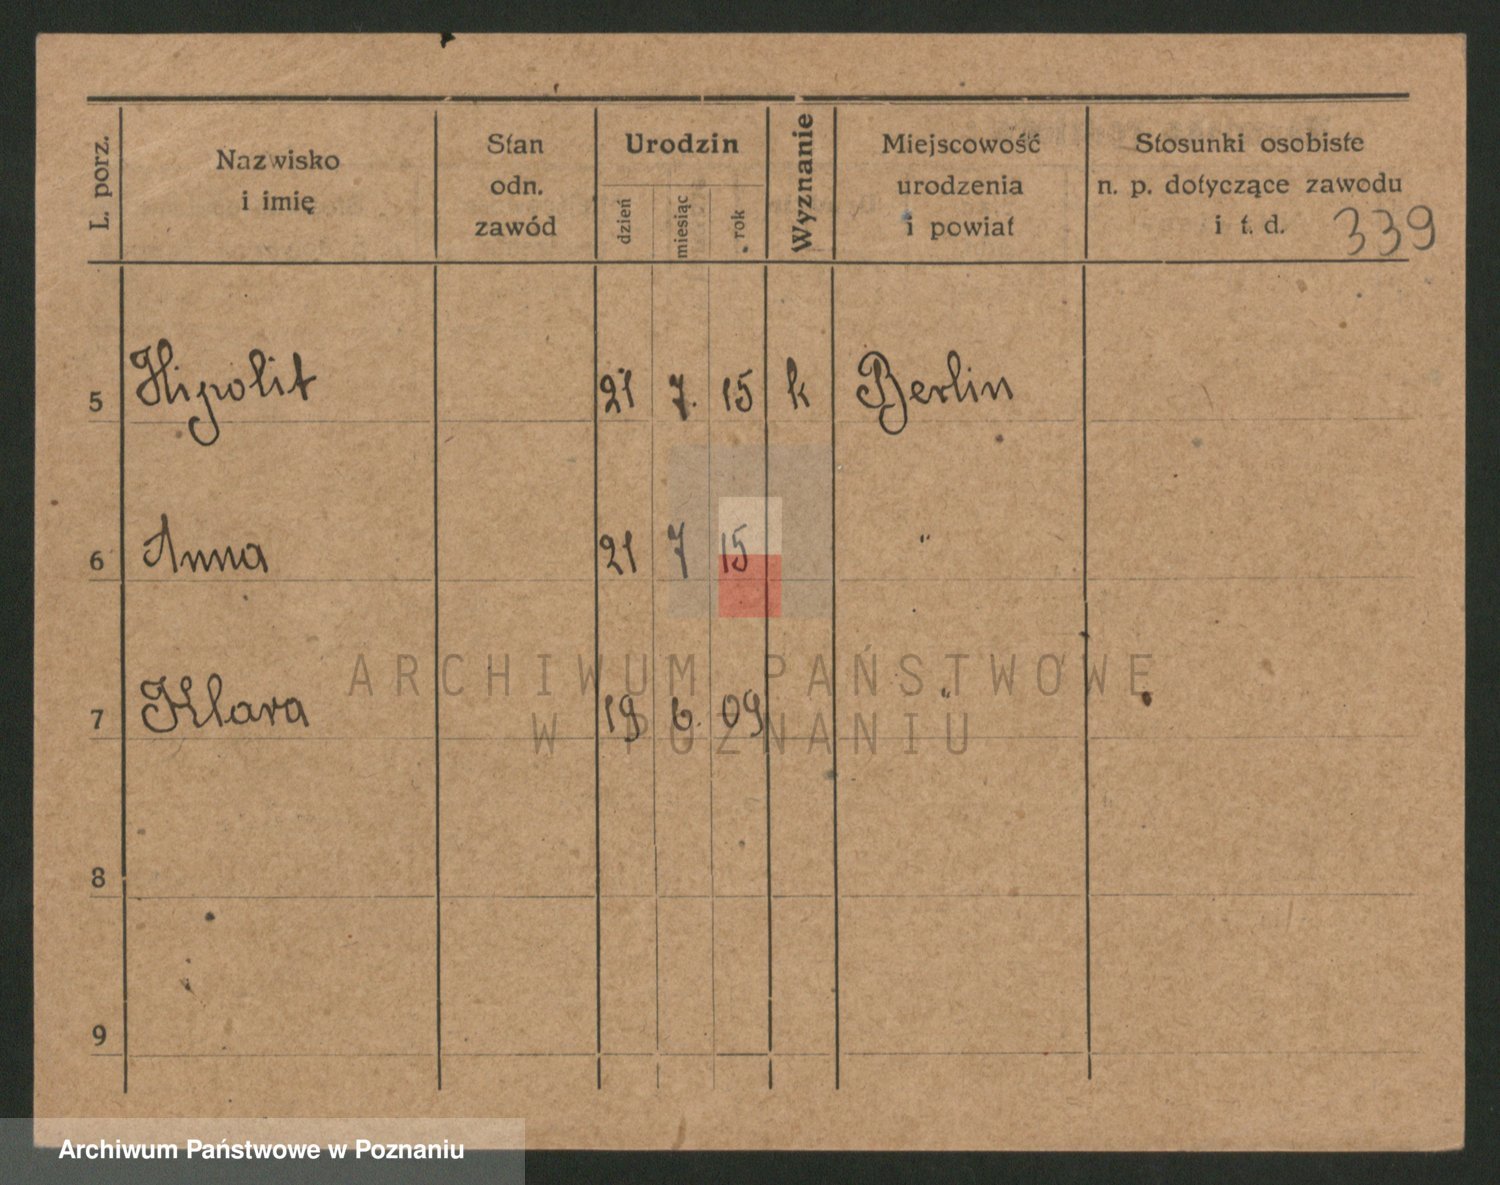 L. porz. Nazwisko i imię Stan odn. zawód Urodzin dzień miesiąc rok Wyznanie Miejscowość urodzenia i powiat Stosunki osobiste n. p. dotyczące zawodu i t. d.
339
5 Hipolit 21 7. 15 k Berlin
6 Anna 21 7 15 "
7 Klara 19 6. 09 "
8
9
ARCHIWUM PAŃSTWOWE
W POZNANIU
Archiwum Państwowe w Poznaniu